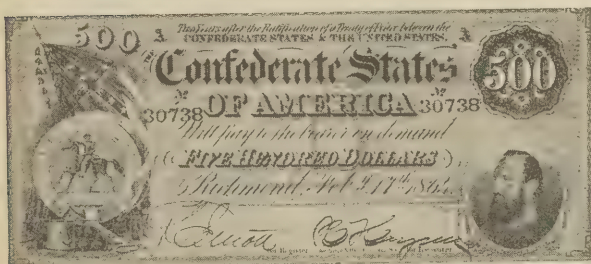 500 Two Years after the Ratification of a Treaty of Peace between the
CONFEDERATE STATES & THE UNITED STATES.
Confederate States 500
No 30738 OF AMERICA No 30738
Will pay to the bearer on demand
FIVE HUNDRED DOLLARS
Richmond, Feb 17th 1864